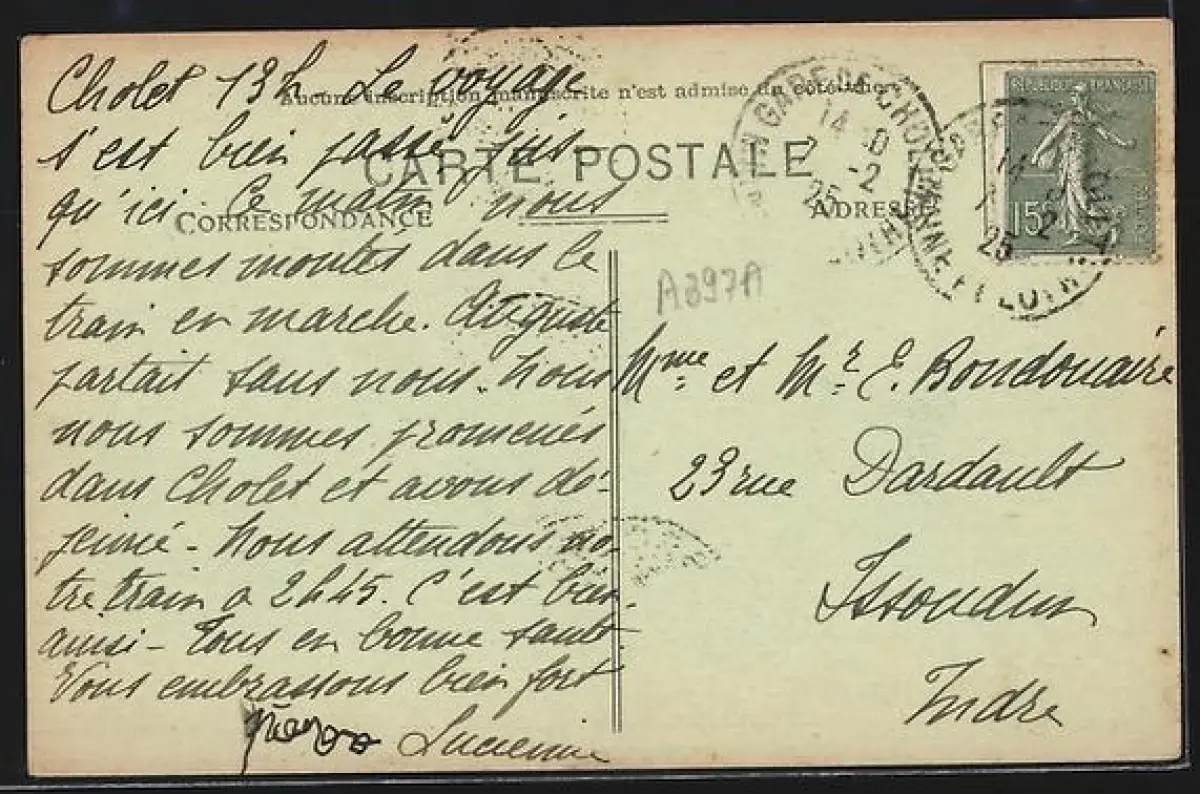 Aucune inscription manuscrite n'est admise du côté
CARTE POSTALE
CORRESPONDANCE
ADRESSE
Cholet 13h. Le voyage
s'est bien passé jus-
qu'ici. Ce matin nous
sommes montés dans le
train en marche. Auguste
partait sans nous. Nous
nous sommes promenés
dans Cholet et avons dé-
jeuné - Nous attendons no-
tre train a 2h45. C'est bien
ainsi - Tous en bonne santé
Vous embrassons bien fort
Lucienne
A397A
Mme et Mr E. Boudouaire
23 rue Dardault
Issoudun
Indre
REPUBLIQUE FRANÇAISE
15c
GARE DE CHOLET
14
-2
25
MAINE ET LOIRE
25